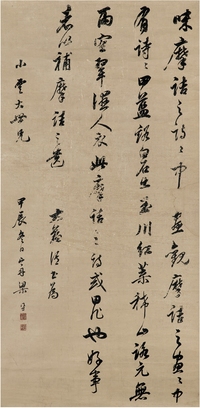 味摩詰之詩〻中有畫觀摩詰之畫〻中
有詩〻曰藍谿白石出玉川紅葉稀山路元無
雨空翠濕人衣此摩詰之詩或曰非也好事
者以補摩詰之遺
小雲大世兄
甲辰冬日